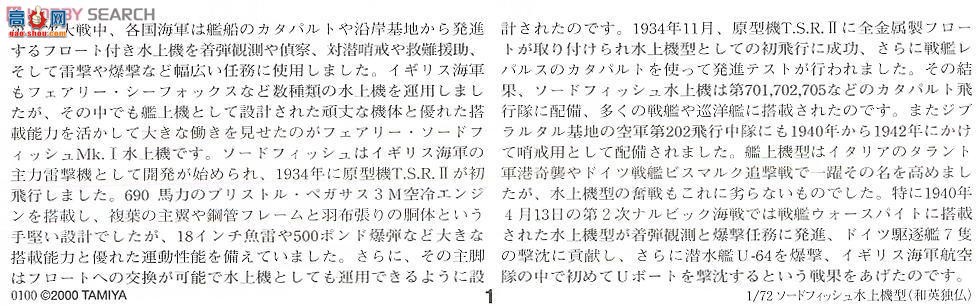 HOBBY SEARCH
大戦中、各国海軍は艦船のカタパルトや沿岸基地から発進
するフロート付き水上機を着弾観測や偵察、対潜哨戒や救難援助、
そして雷撃や爆撃など幅広い任務に使用しました。イギリス海軍
もフェアリー・シーフォックスなど数種類の水上機を運用しまし
たが、その中でも艦上機として設計された頑丈な機体と優れた搭
載能力を活かして大きな働きを見せたのがフェアリー・ソードフ
ィッシュMk.Ⅰ水上機です。ソードフィッシュはイギリス海軍の
主力雷撃機として開発が始められ、1934年に原型機T.S.R.Ⅱが初
飛行しました。690 馬力のブリストル・ペガサス3M空冷エンジ
ンを搭載し、複葉の主翼や鋼管フレームと羽布張りの胴体という
手堅い設計でしたが、18インチ魚雷や500ポンド爆弾など大きな
搭載能力と優れた運動性能を備えていました。さらに、その主脚
はフロートへの交換が可能で水上機としても運用できるように設
計されたのです。1934年11月、原型機T.S.R.Ⅱに全金属製フロー
トが取り付けられ水上機型としての初飛行に成功、さらに戦艦レ
パルスのカタパルトを使って発進テストが行われました。その結
果、ソードフィッシュ水上機は第701,702,705などのカタパルト飛
行隊に配備、多くの戦艦や巡洋艦に搭載されたのです。またジブ
ラルタル基地の空軍第202飛行中隊にも1940年から1942年にかけ
て哨戒用として配備されました。艦上機型はイタリアのタラント
軍港奇襲やドイツ戦艦ビスマルク追撃戦で一躍その名を高めまし
たが、水上機型の奮戦もこれに劣らないものでした。特に1940年
4月13日の第2次ナルビック海戦では戦艦ウォースパイトに搭載
された水上機型が着弾観測と爆撃任務に発進、ドイツ駆逐艦7隻
の撃沈に貢献し、さらに潜水艦U-64を爆撃、イギリス海軍航空
隊の中で初めてUボートを撃沈するという戦果をあげたのです。
0100 ©2000 TAMIYA
1
1/72 ソードフィッシュ水上機型(和英独仏)